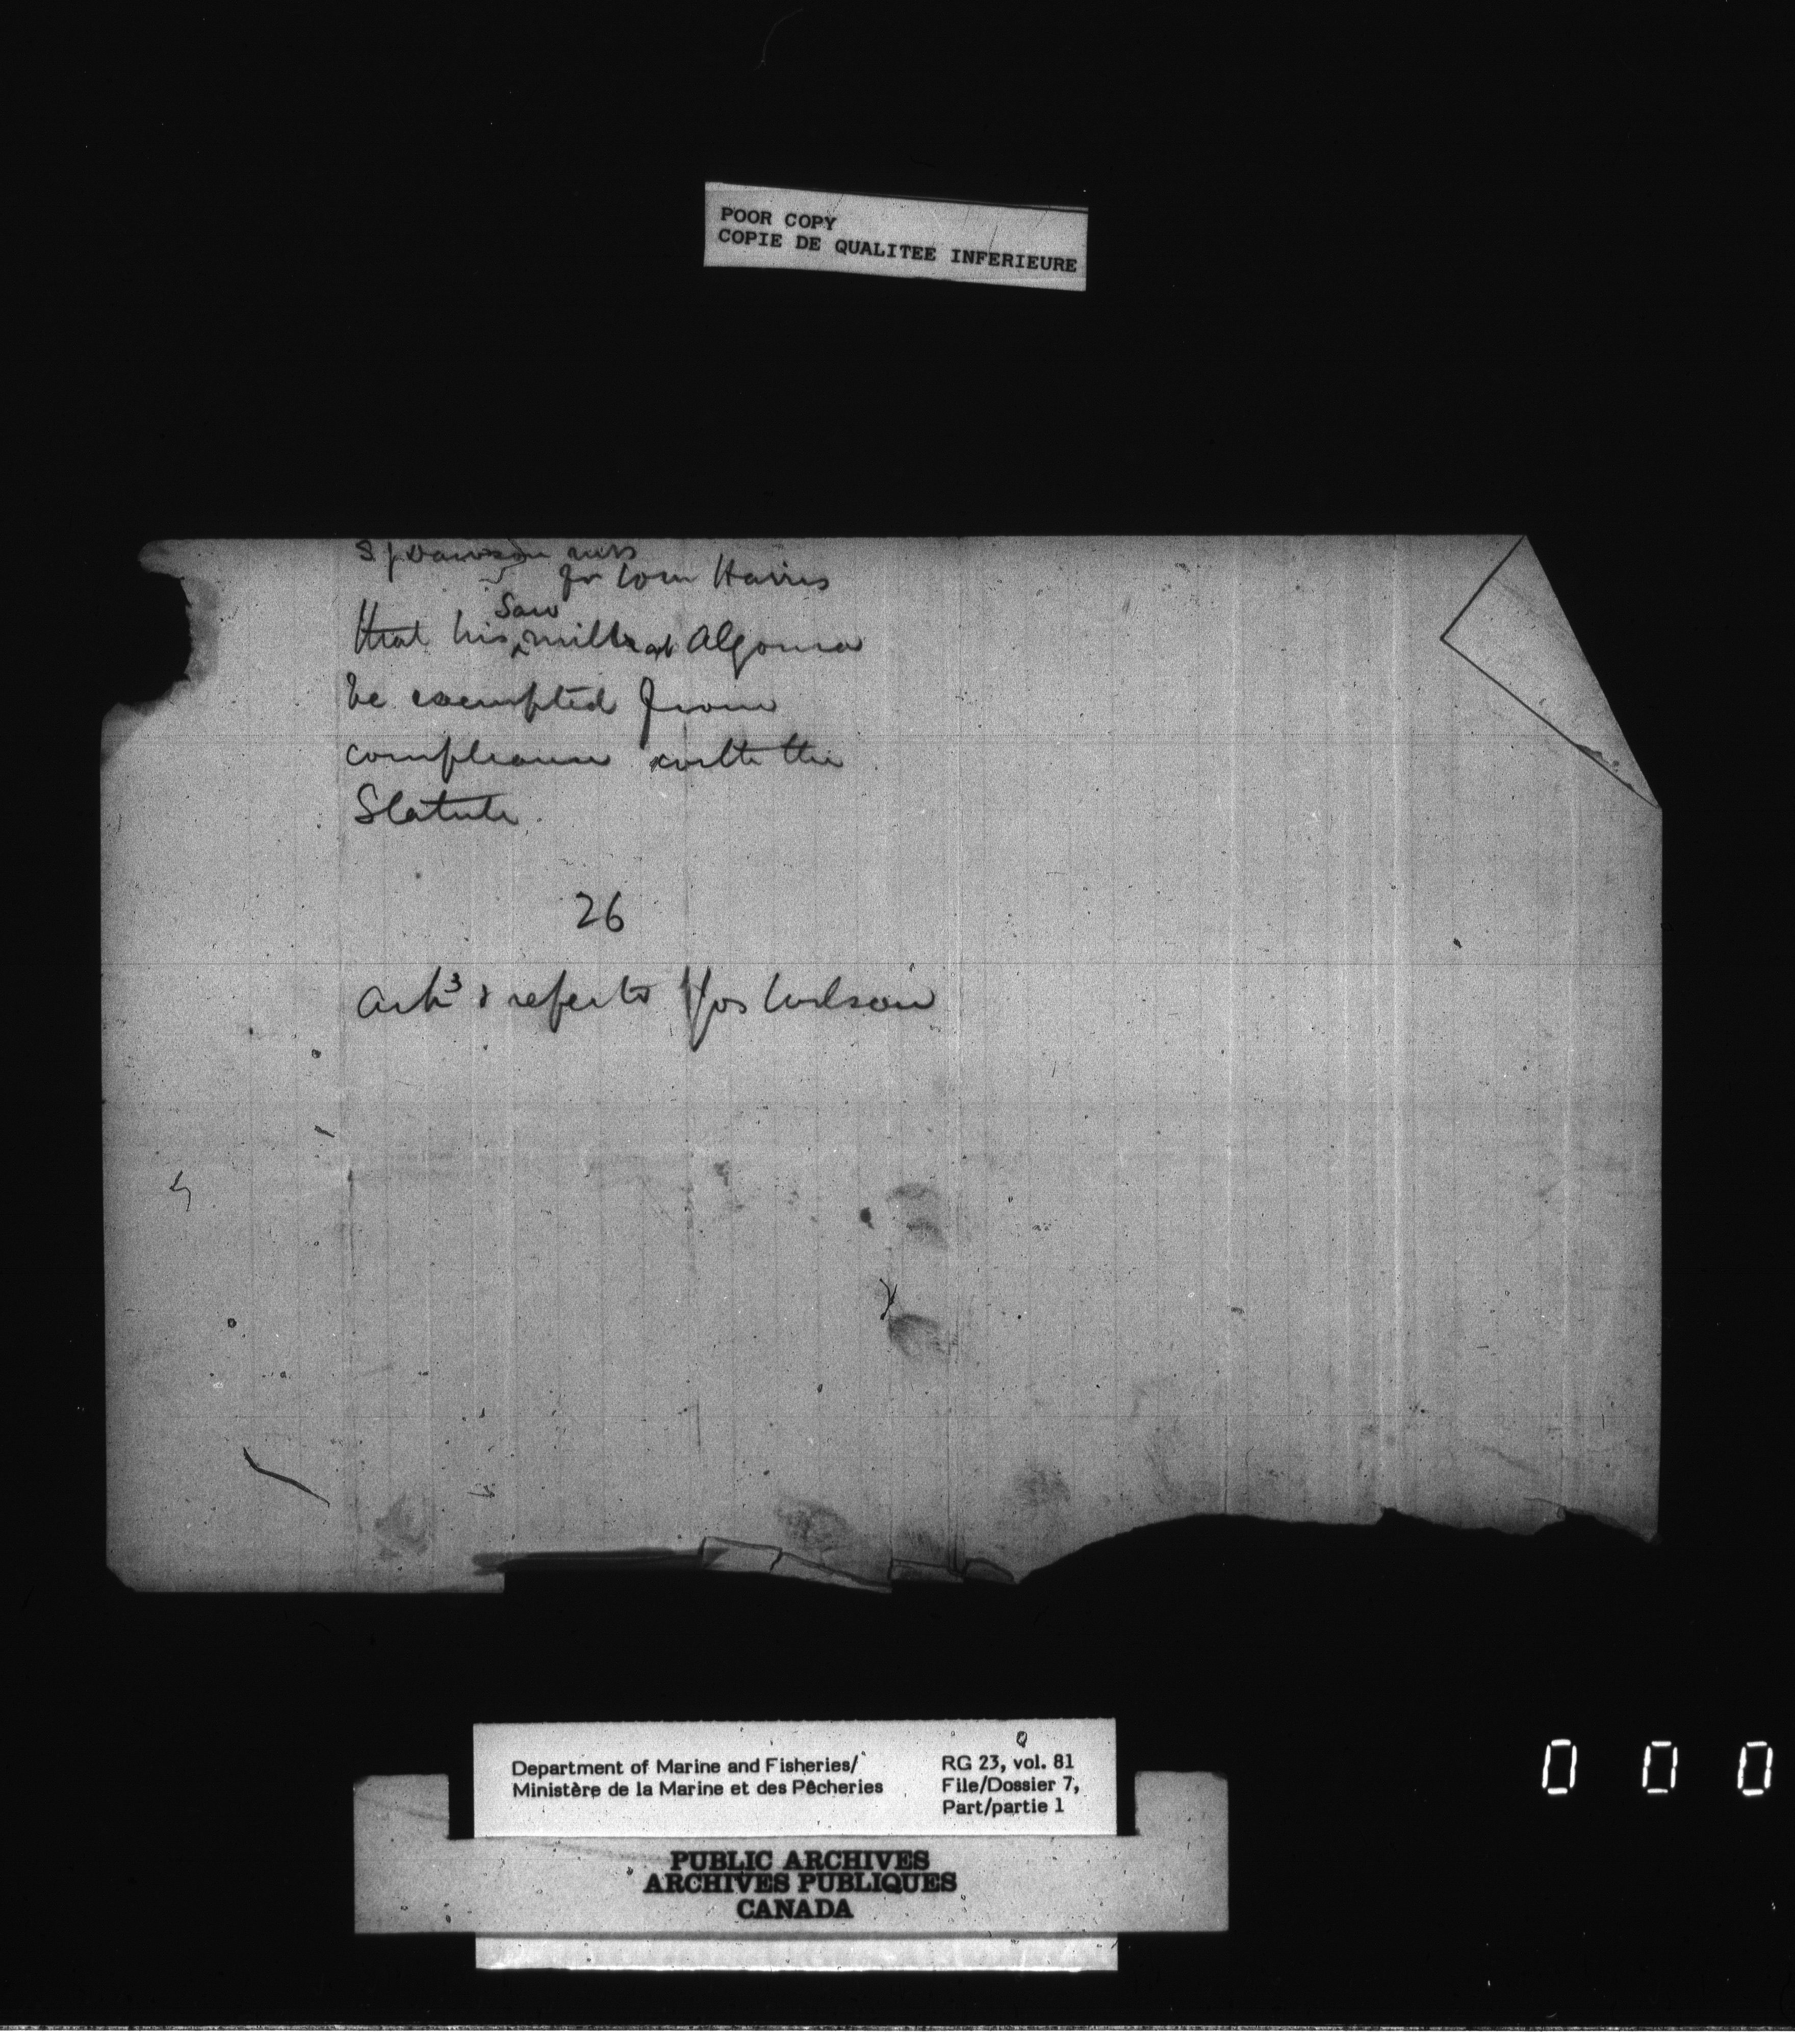 POOR COPY
COPIE DE QUALITEE INFERIEURE
S J Dawson
for Harris
Saw
that his mills at Algoma
be exempted from
compliance with the
Statute.
26
& refer to Jos Wilson
Department of Marine and Fisheries/
Ministère de la Marine et des Pêcheries
RG 23, vol. 81
File/Dossier 7,
Part/partie 1
PUBLIC ARCHIVES
ARCHIVES PUBLIQUES
CANADA
0 0 0